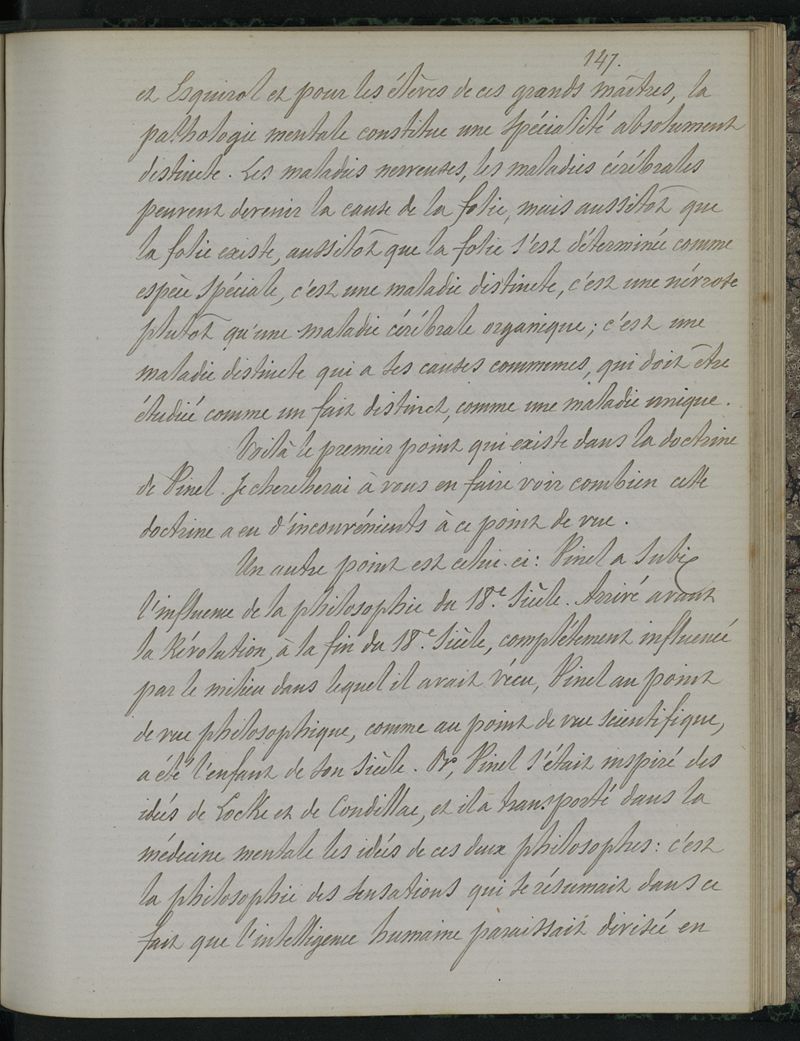 147.
et Esquirol et pour les élèves de ces grands maîtres, la
pathologie mentale constitue une spécialité absolument
distincte. Les maladies nerveuses, les maladies cérébrales
peuvent devenir la cause de la folie, mais aussitôt que
la folie existe, aussitôt que la folie s'est déterminée comme
espèce spéciale, c'est une maladie distincte, c'est une névrose
plutôt qu'une maladie cérébrale organique; c'est une
maladie distincte qui a ses causes communes, qui doit être
étudiée comme un fait distinct, comme une maladie unique.
Voilà le premier point qui existe dans la doctrine
de Pinel. Je chercherai à vous en faire voir combien cette
doctrine a eu d'inconvénients à ce point de vue.
Un autre point est celui-ci: Pinel a subi
l'influence de la philosophie du 18.e Siècle. Arrivé avant
la Révolution, à la fin du 18.e Siècle, complètement influencé
par le milieu dans lequel il avait vécu, Pinel au point
de vue philosophique, comme au point de vue scientifique,
a été l'enfant de son siècle. Or, Pinel s'était inspiré des
idées de Locke et de Condillac, et il a transporté dans la
médecine mentale les idées de ces deux philosophes: c'est
la philosophie des sensations qui se résumait dans ce
fait que l'intelligence humaine paraissait divisée en